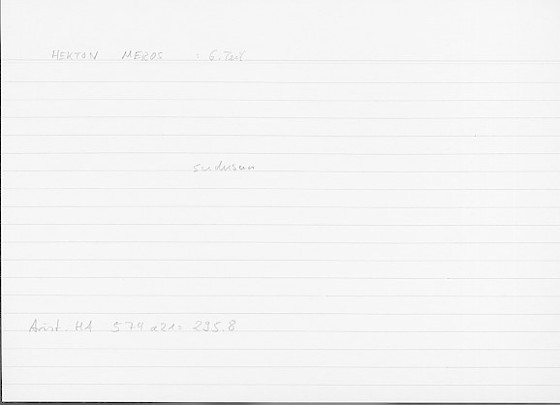 HEKTON MEROS : 6. Teil
sudusun
Arist. HA 574 a21 = 235.8